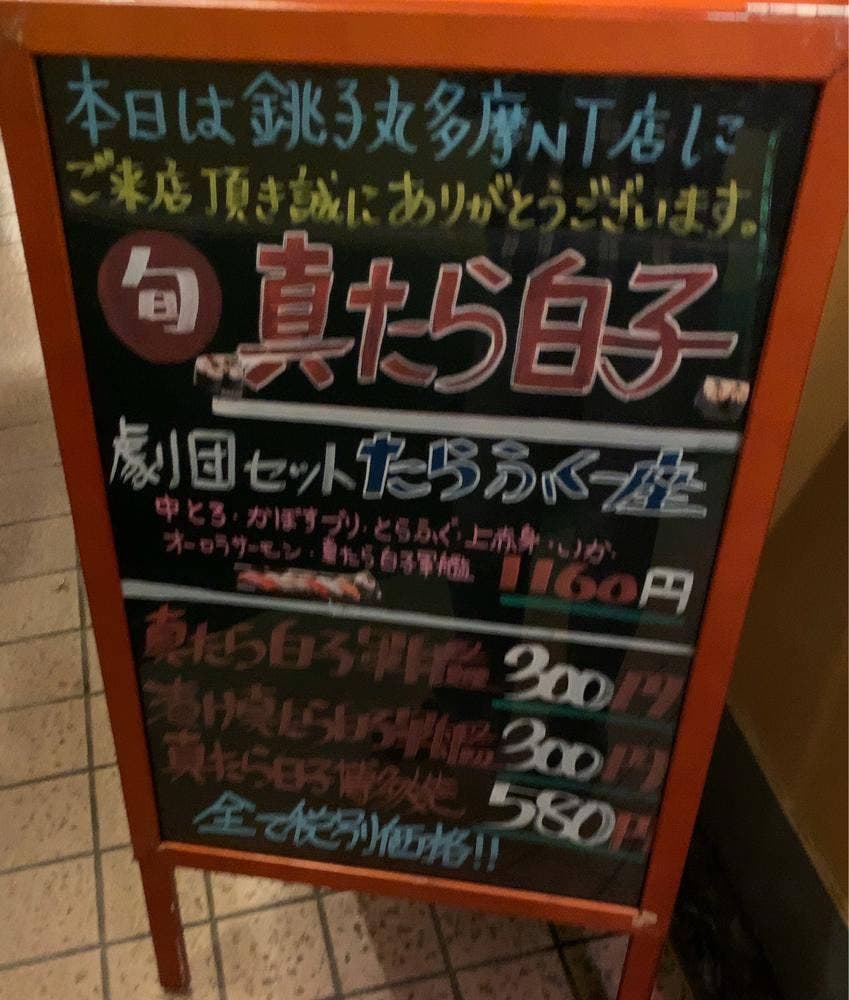 本日は銚子丸多摩NT店に
ご来店頂き誠にありがとうございます。
旬 真たら白子
劇団セットたらふく一座
中とろ・かぼすブリ・とらふぐ・上赤身・いか・
オーロラサーモン・真たら白子軍艦 1160円
真たら白子軍艦 300円
漬け真たら白子軍艦 300円
真たら白子 580円
全て税別価格!!